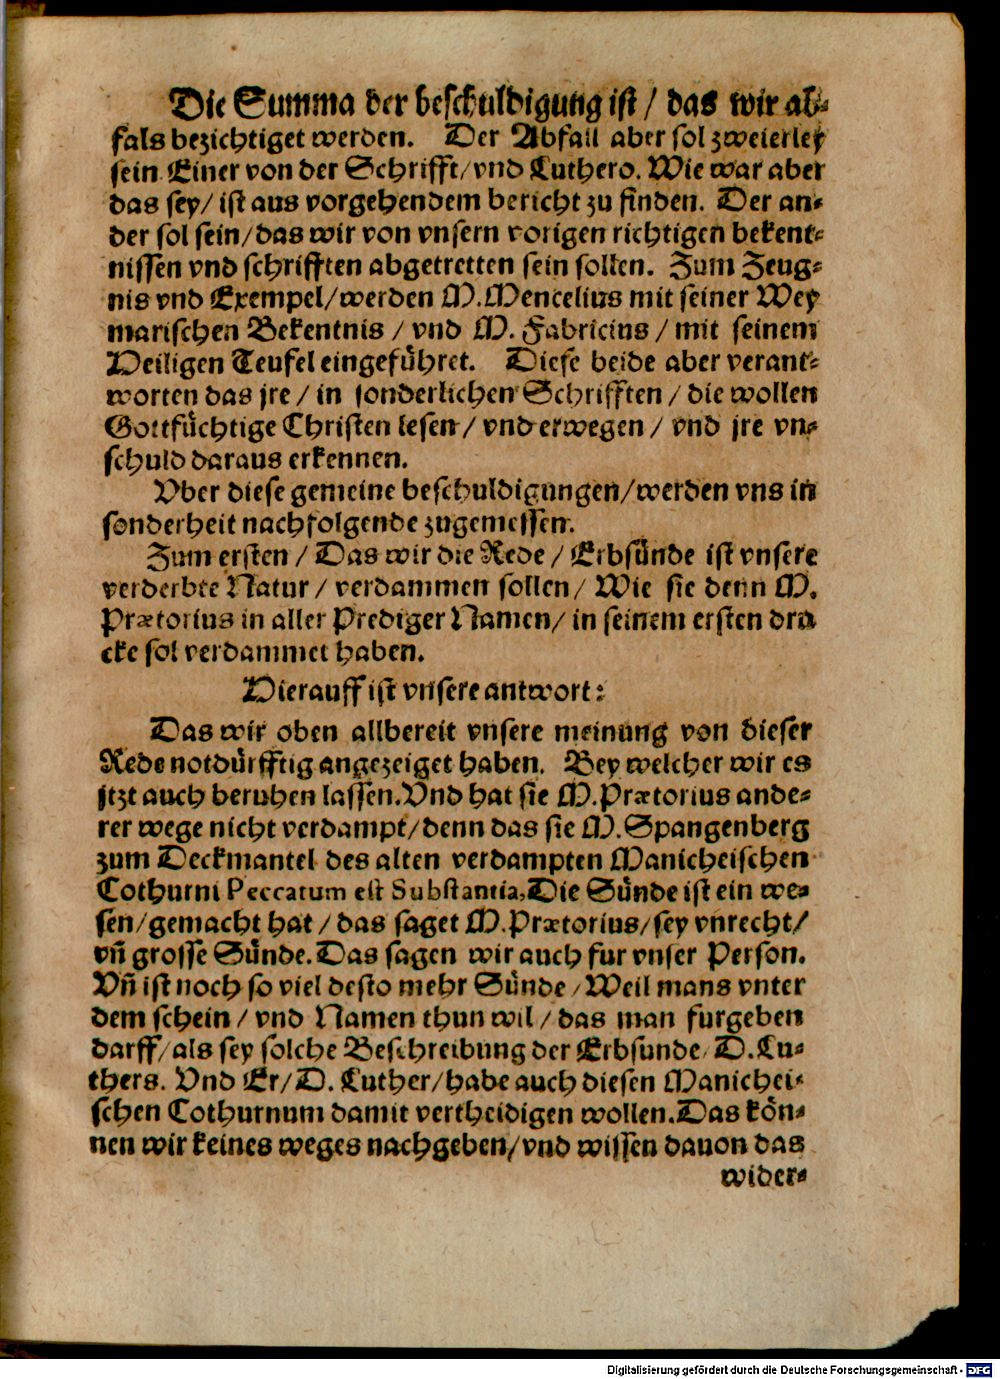 Die Summa der beschuldigung ist / das wir ab-
fals bezichtiget werden. Der Abfall aber sol zweierley
sein Einer von der Schrifft/ vnd Luthero. Wie war aber
das sey/ ist aus vorgehendem bericht zu finden. Der an-
der sol sein/ das wir von vnsern vorigen richtigen bekent-
nissen vnd schrifften abgetretten sein sollen. Zum Zeug-
nis vnd Exempel/ werden M. Mencelius mit seiner Wey
marischen Bekentnis / vnd M. Fabricius / mit seinem
Heiligen Teufel eingeführet. Diese beide aber verant-
worten das jre / in sonderlichen Schrifften / die wollen
Gottfüchtige Christen lesen / vnd erwegen / vnd jre vn-
schuld daraus erkennen.
Vber diese gemeine beschuldigungen/ werden vns in
sonderheit nachfolgende zugemessen.
Zum ersten / Das wir die Rede / Erbsünde ist vnsere
verderbte Natur / verdammen sollen / Wie sie denn M.
Prætorius in aller Prediger Namen/ in seinem ersten dru
cke sol verdammet haben.
Hierauff ist vnsere antwort:
Das wir oben allbereit vnsere meinung von dieser
Rede notdürfftig angezeiget haben. Bey welcher wir es
jtzt auch beruhen lassen. Vnd hat sie M. Prætorius ande-
rer wege nicht verdampt/ denn das sie M. Spangenberg
zum Deckmantel des alten verdampten Manicheischen
Cothurni Peccatum est Substantia, Die Sünde ist ein we-
sen/ gemacht hat / das saget M. Prætorius/ sey vnrecht/
vñ grosse Sünde. Das sagen wir auch fur vnser Person.
Vñ ist noch so viel desto mehr Sünde / Weil mans vnter
dem schein / vnd Namen thun wil / das man furgeben
darff/ als sey solche Beschreibung der Erbsunde/ D. Lu-
thers. Vnd Er/ D. Luther/ habe auch diesen Manichei-
schen Cothurnum damit vertheidigen wollen. Das kön-
nen wir keines weges nachgeben/ vnd wissen dauon das
wider-
Digitalisierung gefördert durch die Deutsche Forschungsgemeinschaft - DFG